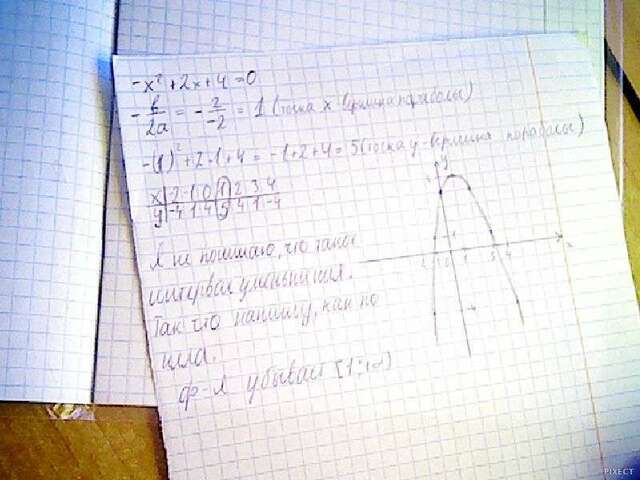 -x² + 2x + 4 = 0
- b/2a = - 2/-2 = 1 (точка x вершина параболы)
-(1)² + 2·1 + 4 = -1 + 2 + 4 = 5 (точка y-вершина параболы)
x | -2 -1 0 1 2 3 4
y | -4 1 4 5 4 1 -4
Я не понимаю, что такое
интервал уменьшения.
Так что напишу, как по
ф-я убывает [1;+∞)
y
x
PIXECT